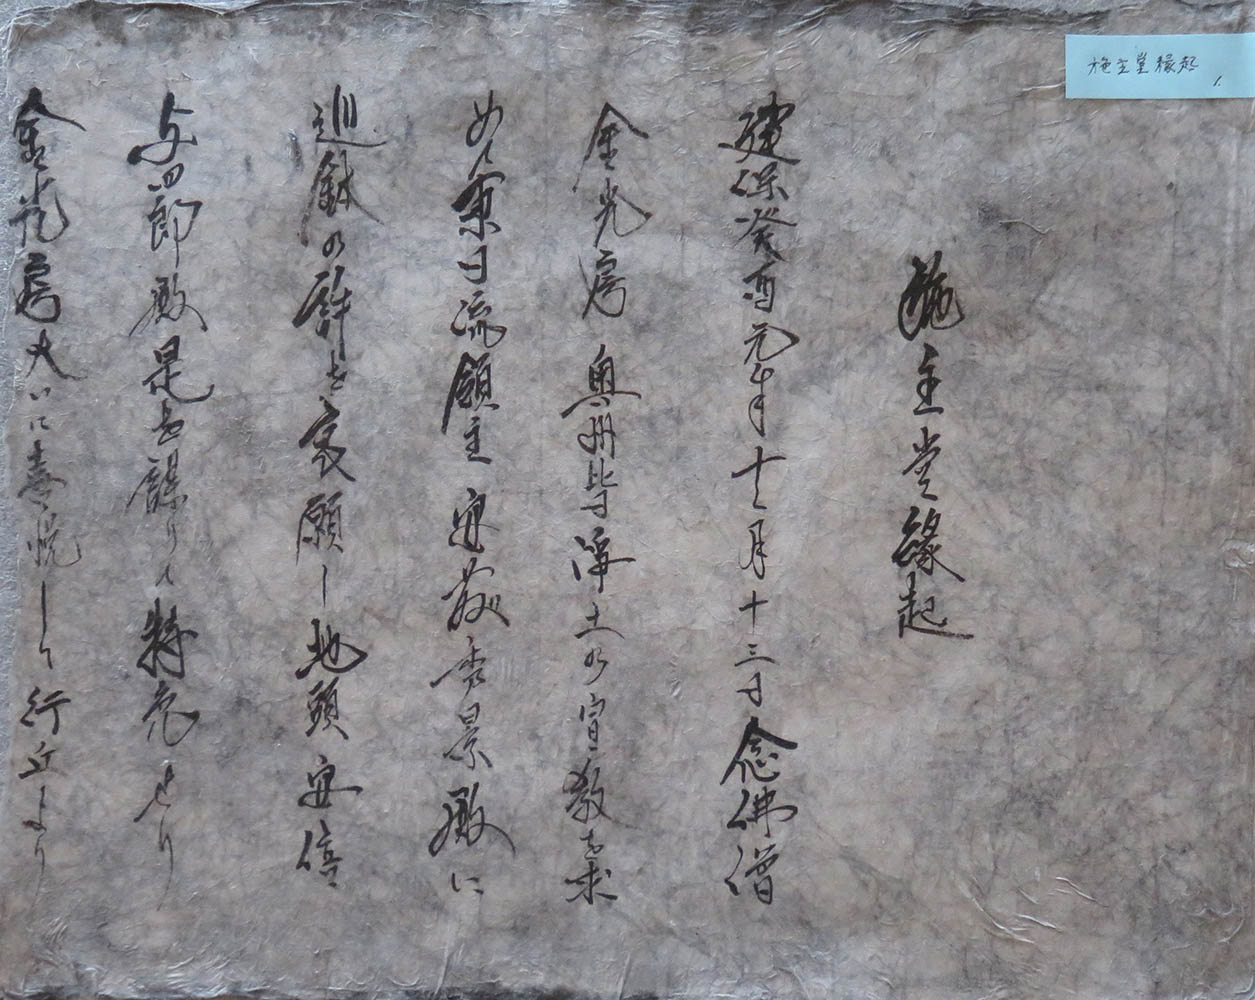 施主堂縁起
1.
施主堂縁起
建保癸酉元年十二月十三日念佛僧
金光房 奥州皆浄土の宣教を求
め人東日流領主 安藤秀景殿に
巡錫の許を哀願し地頭安倍
与四郎殿是を謀りて特免せり
金光房大いに喜悦して行丘より